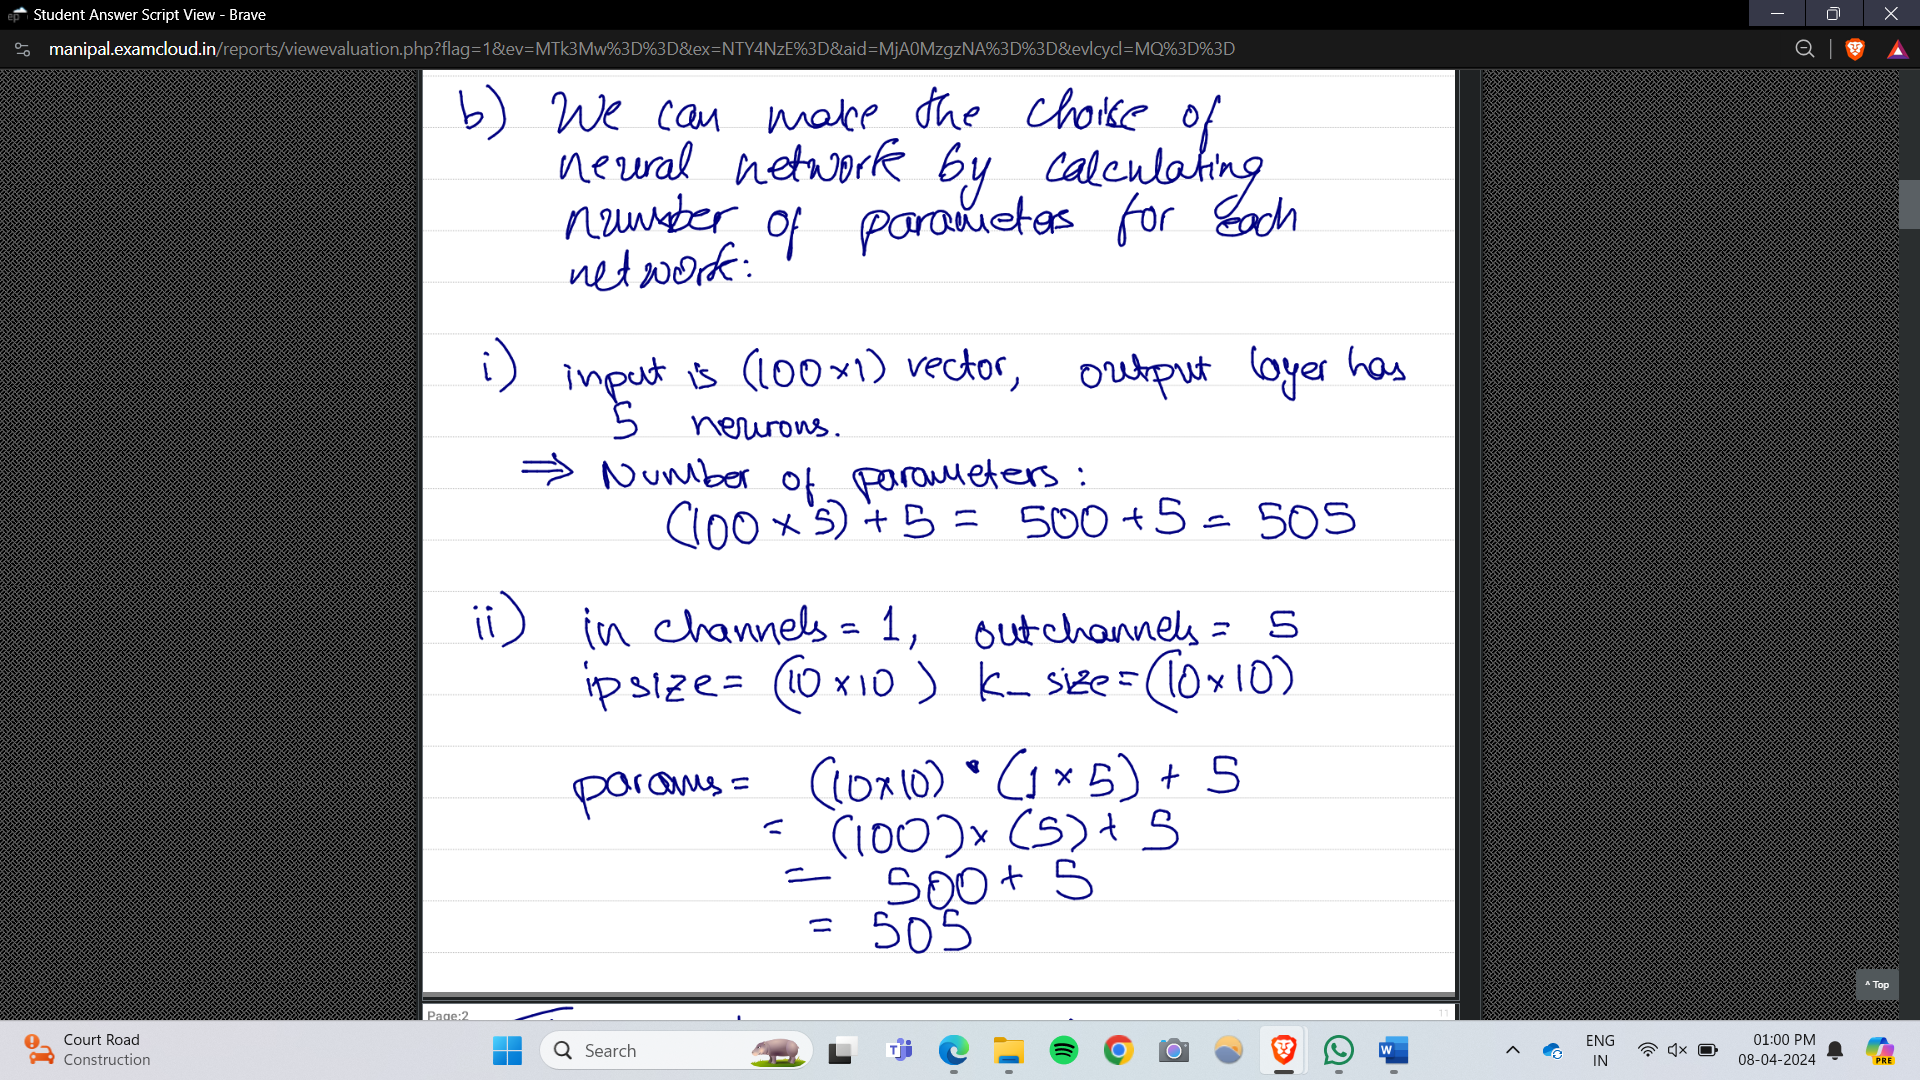 Student Answer Script View - Brave
manipal.examcloud.in/reports/viewevaluation.php?flag=1&ev=MTk3Mw%3D%3D&ex=NTY4NzE%3D&aid=MjA0MzgzNA%3D%3D&evlcycl=MQ%3D%3D
b) We can make the choise of
neural network by calculating
number of parameters for each
network:
i) input is (100×1) vector, output layer has
5 neurons.
⇒ Number of parameters:
(100 × 5) + 5 = 500 + 5 = 505
ii) in channels = 1, outchannels = 5
ipsize = (10 × 10) k_size = (10×10)
params = (10×10) • (1 × 5) + 5
= (100) × (5) + 5
= 500 + 5
= 505
^ Top
Page:2
11
Court Road
Construction
Search
ENG
IN
01:00 PM
08-04-2024
PRE